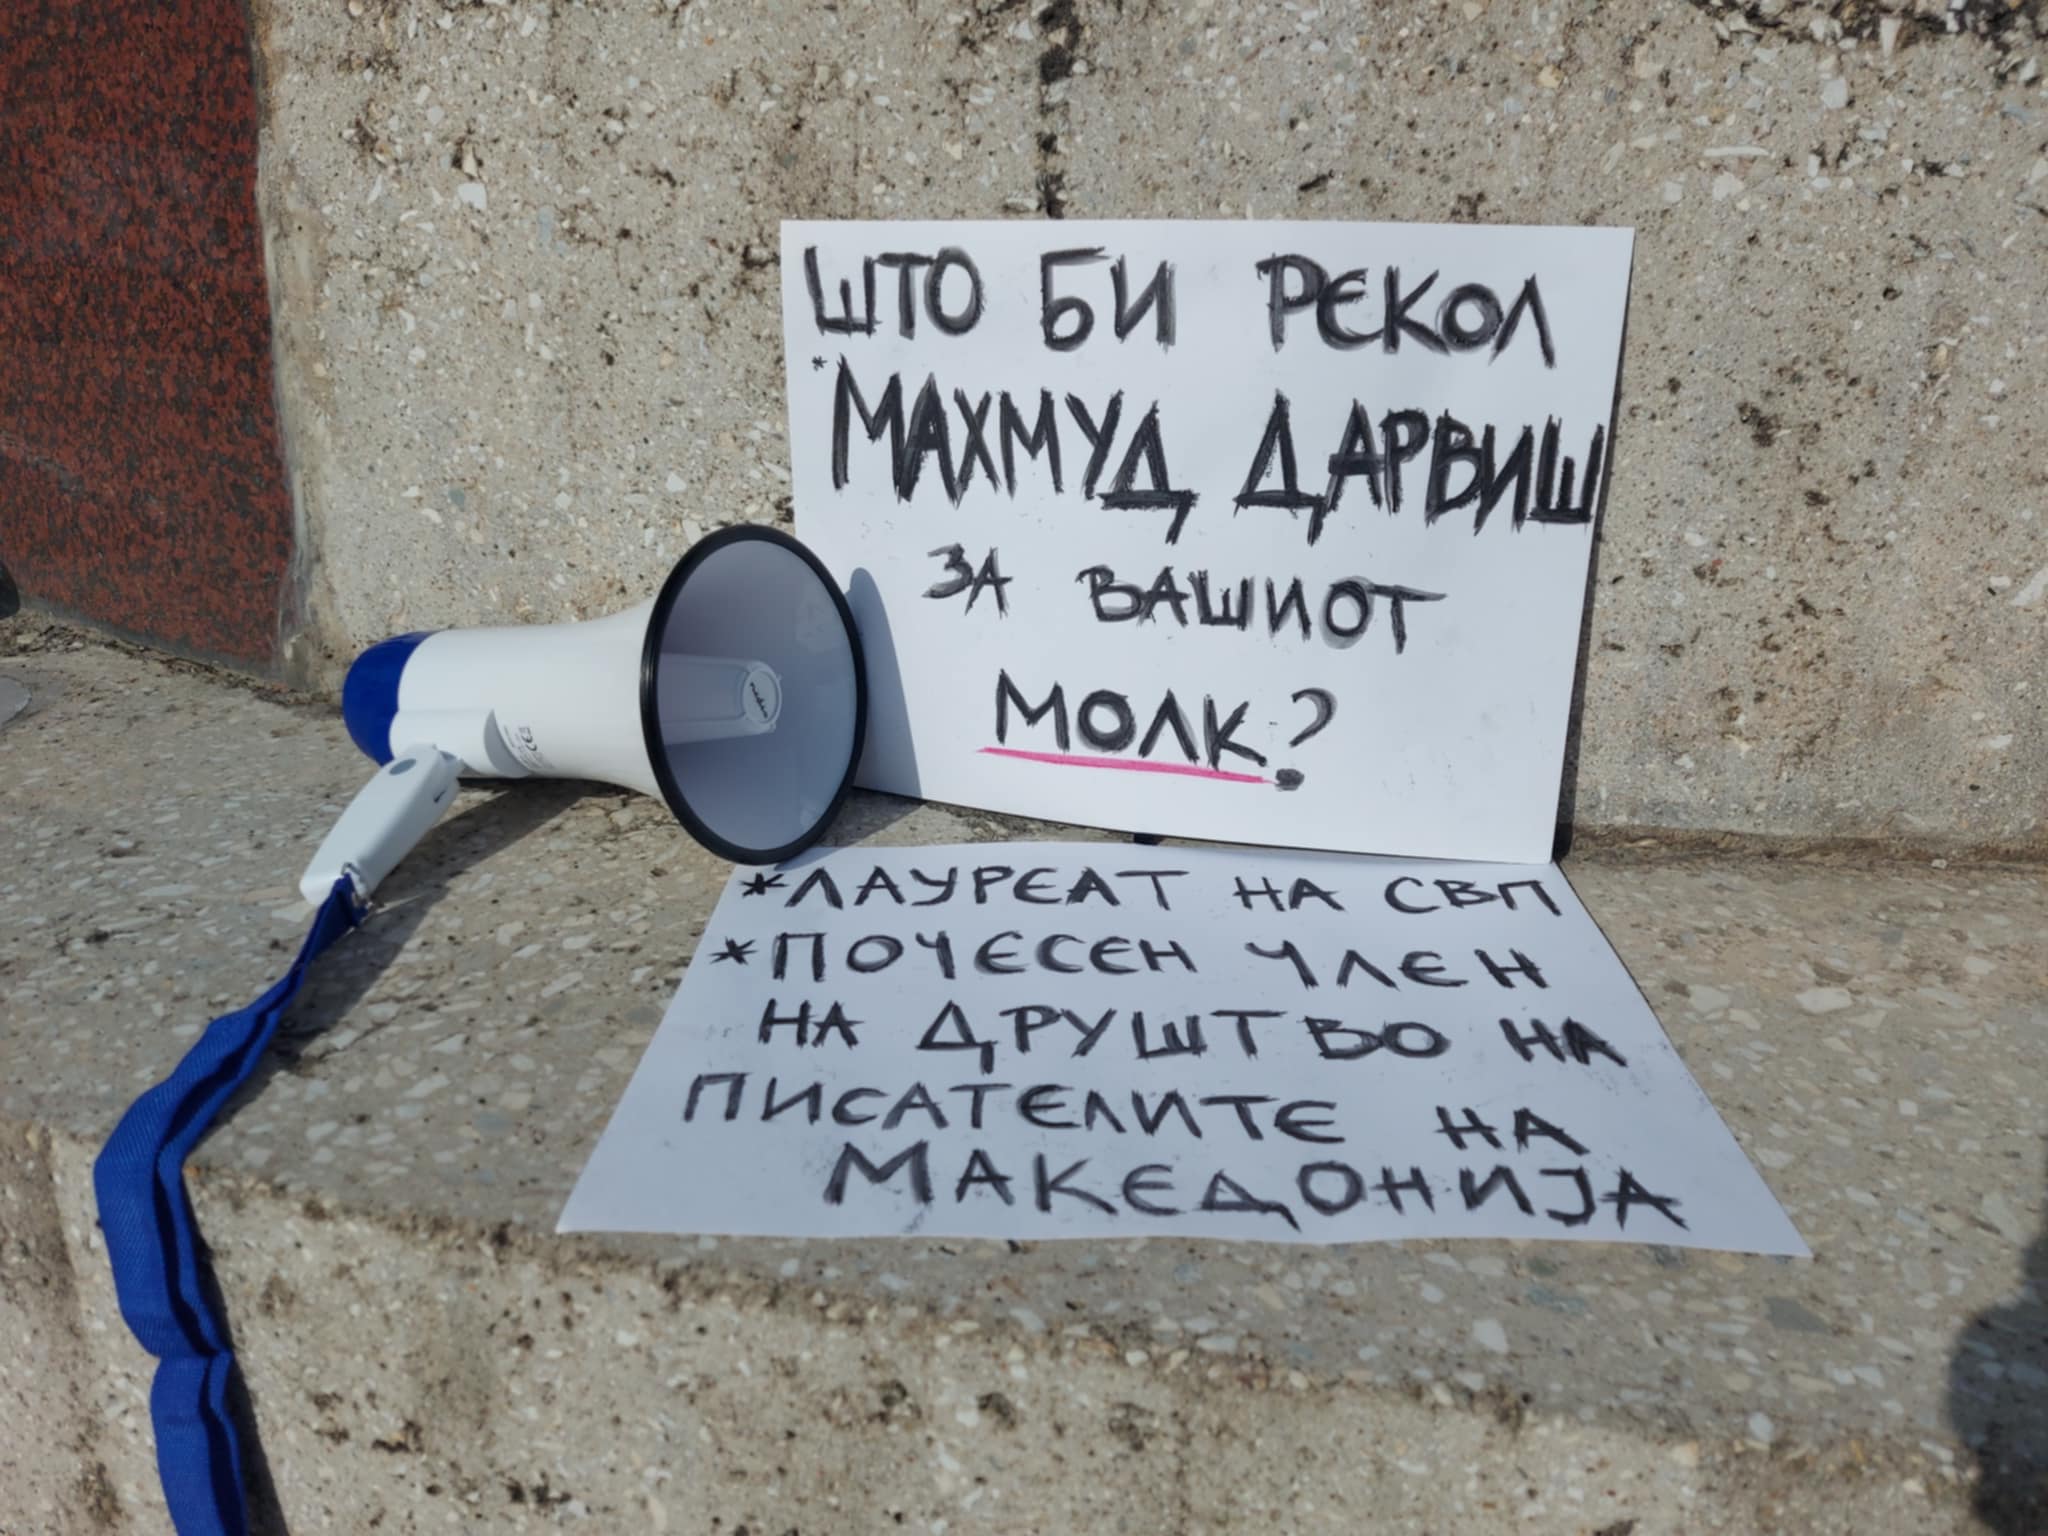 ШТО БИ РЕКОЛ
*МАХМУД ДАРВИШ
ЗА ВАШИОТ
МОЛК?
*ЛАУРЕАТ НА СВП
*ПОЧЕСЕН ЧЛЕН
НА ДРУШТВО НА
ПИСАТЕЛИТЕ НА
МАКЕДОНИЈА
nedis